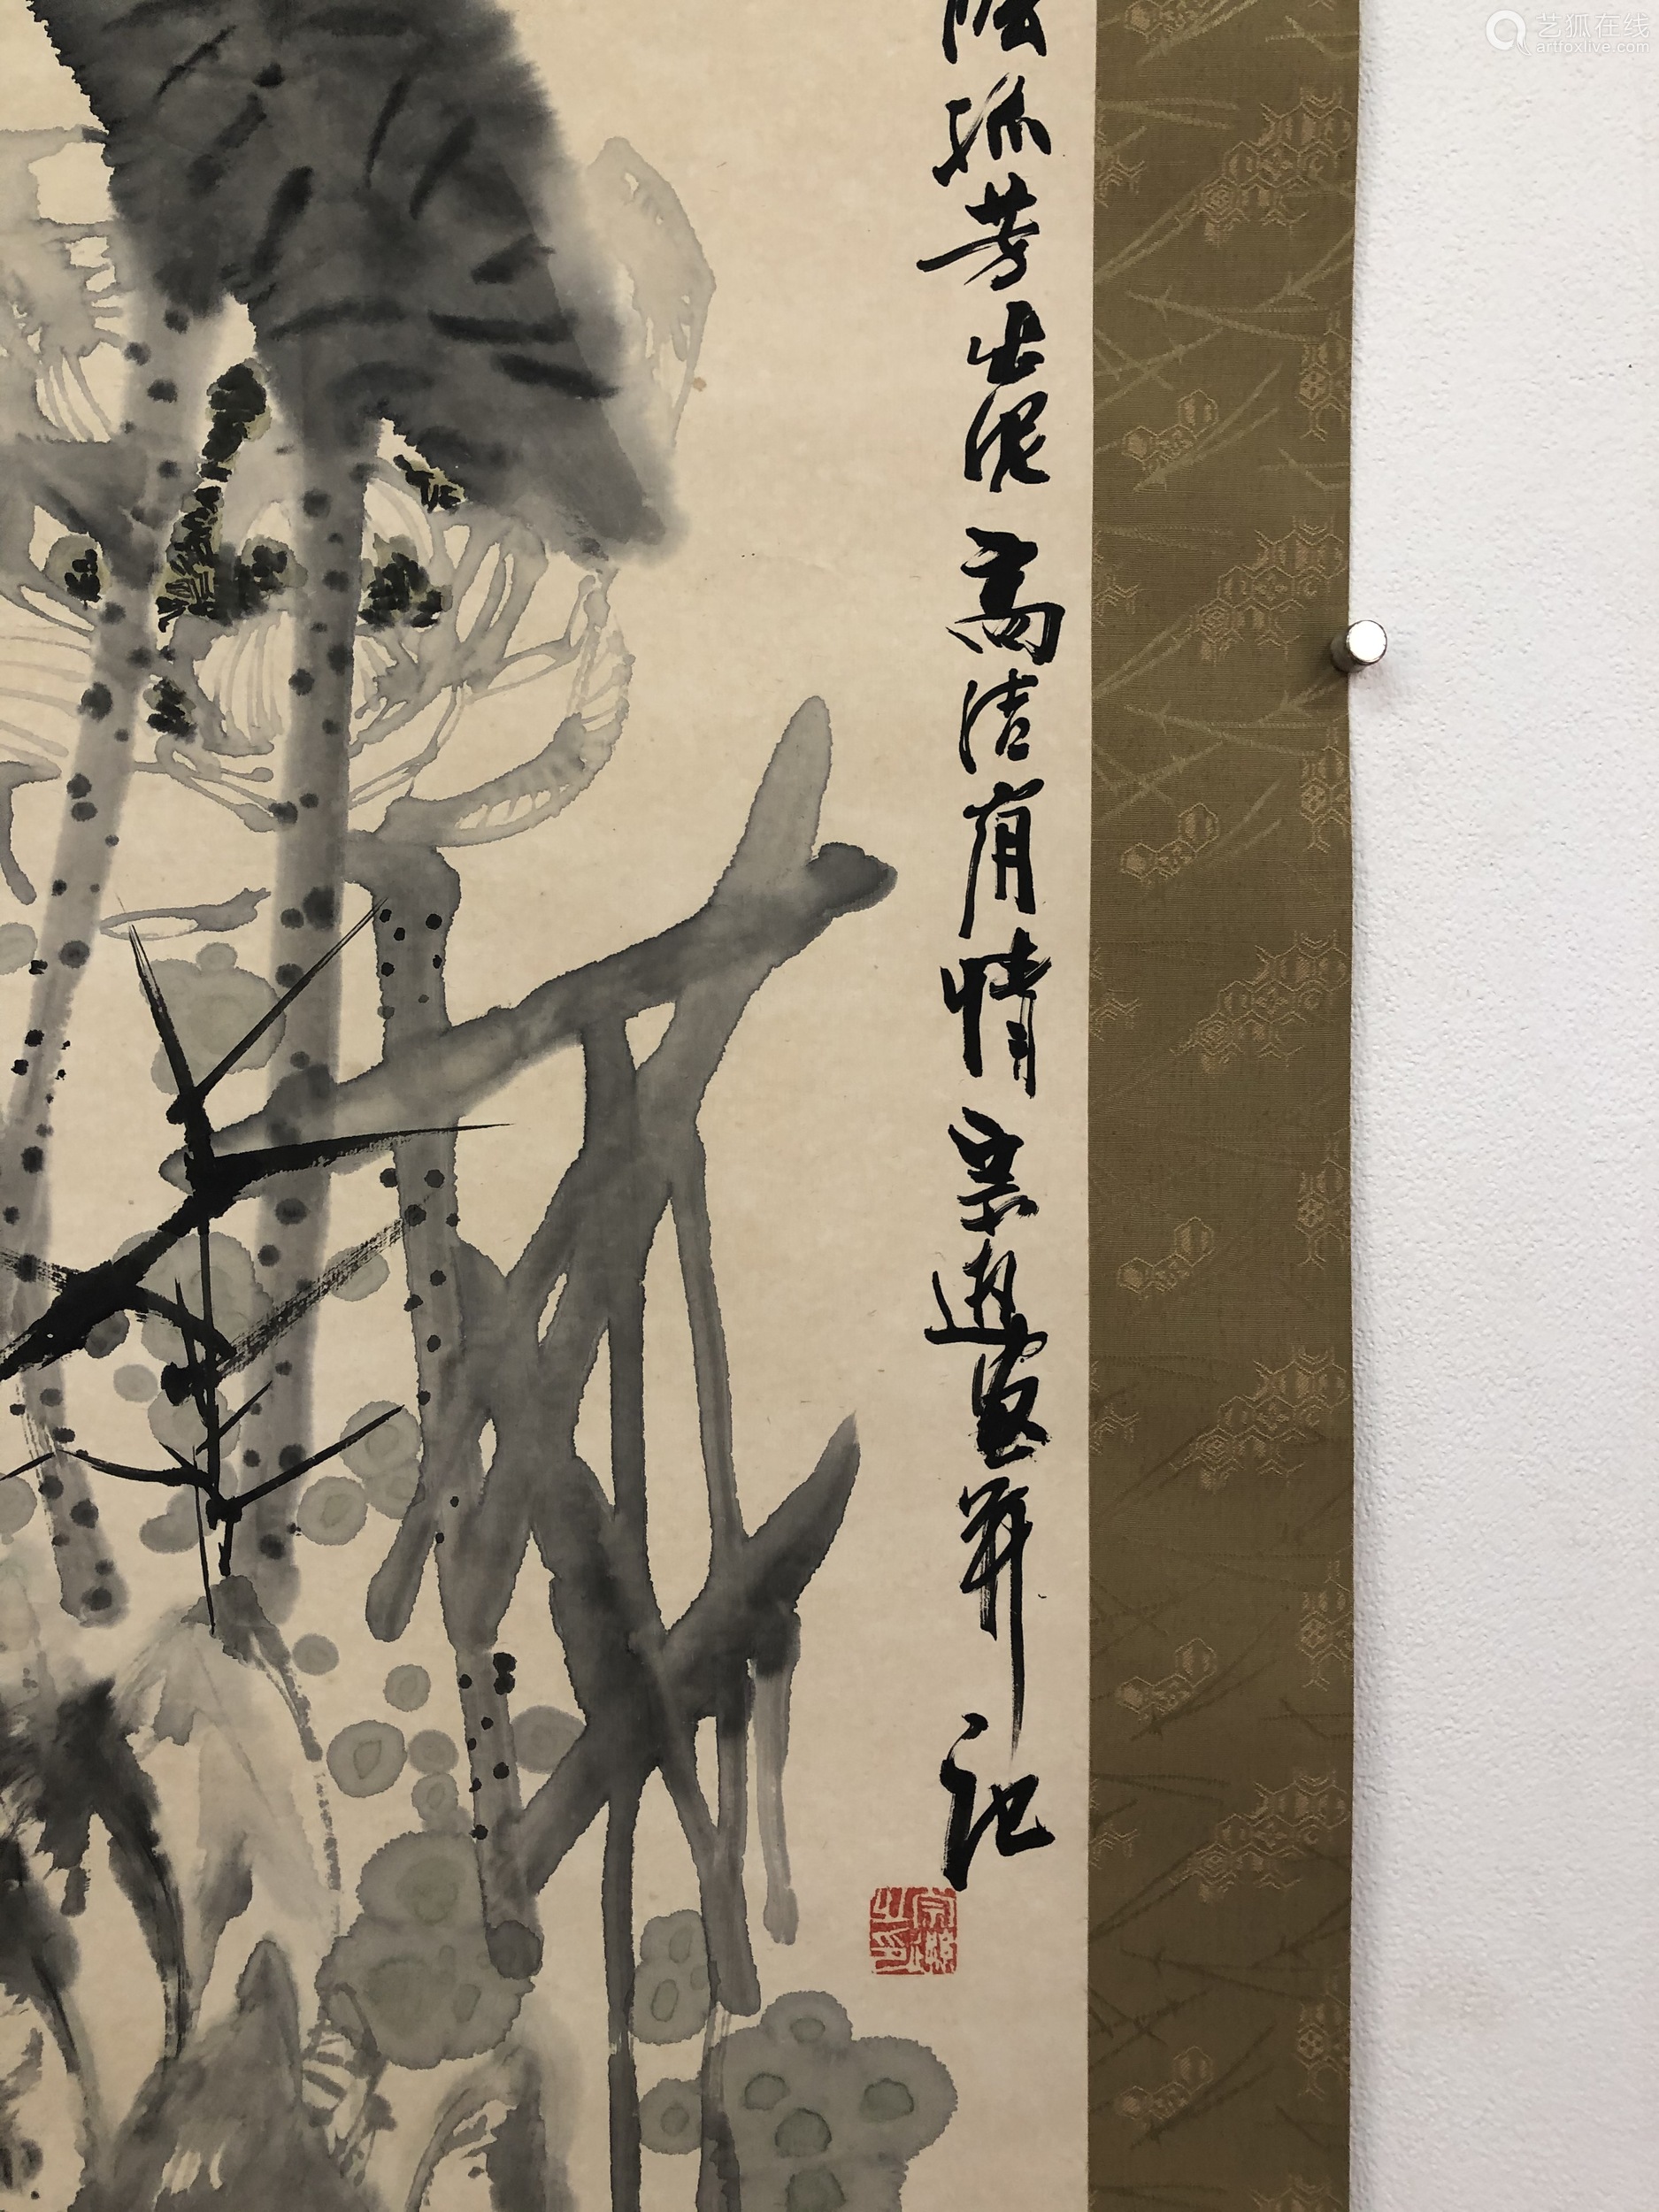 孤芳出泥高洁有情宗逊画并记
艺狐在线
artfoxlive.com